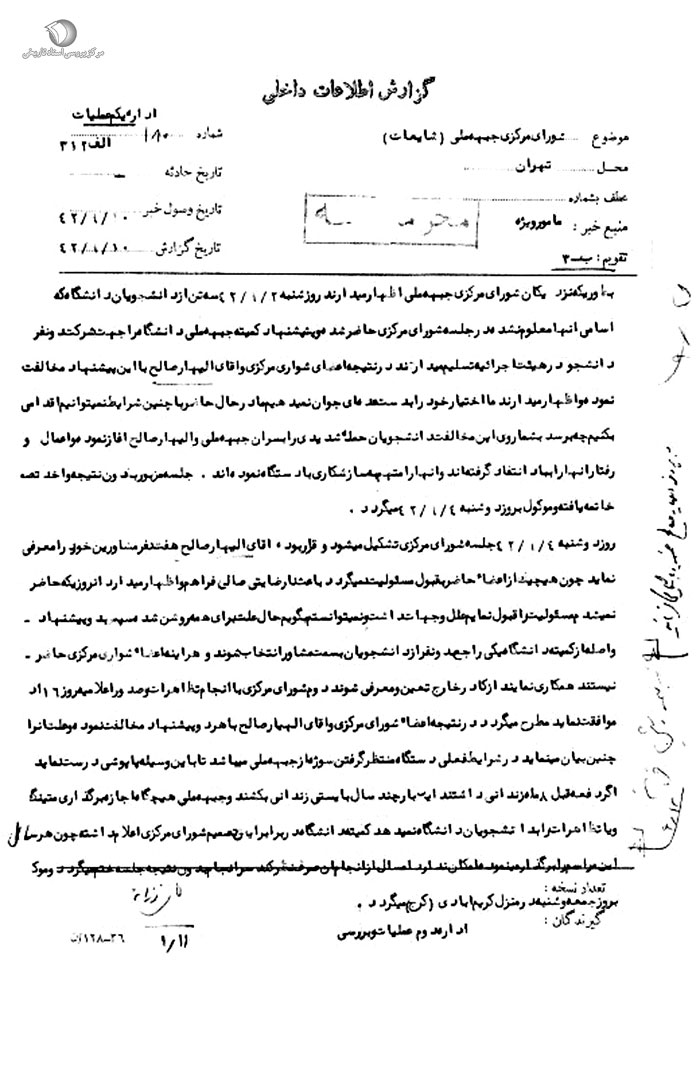 مرکز بررسی اسناد تاریخی
گزارش اطلاعات داخلی
اداره یکم عملیات
موضوع شورای مرکزی جبهه ملی (شایعات)
شماره الف ۳۱۲
محل تهران
تاریخ حادثه —
عطف بشماره
تاریخ وصول خبر
منبع خبر: مامور ویژه
محرمانه
تاریخ گزارش
تقویم: ب-۳
بطوریکه نزدیکان شورای مرکزی جبهه ملی اظهار میدارند روز شنبه ۴۲/۱/۲ سه تن از دانشجویان دانشگاه که
اسامی آنها معلوم نشده در جلسه شورای مرکزی حاضر شده و پیشنهاد کمیته جبهه ملی دانشگاه را جهت شرکت دو نفر
دانشجو در هیئت اجرائیه تسلیم میدارند در نتیجه اعضای شورای مرکزی و اقای الهیار صالح با این پیشنهاد مخالفت
نموده و اظهار میدارند ما اختیار خود را بدست عده ای جوان نمیدهیم ما در حال حاضر با چنین شرایط نمیتوانیم اقدامی
بکنیم چه برسد بشما روی این مخالفت دانشجویان حمله شدیدی را بسران جبهه ملی و الهیار صالح اغاز نموده و اعمال و
رفتار انها را بباد انتقاد گرفته اند و انها را متهم به سازشکاری با دستگاه نموده اند . جلسه مزبور بدون نتیجه و اخذ تصمیم
خاتمه یافته و موکول بروز دوشنبه ۴۲/۱/۴ میگردد .
روز دوشنبه ۴۲/۱/۴ جلسه شورای مرکزی تشکیل میشود و قرار بوده اقای الهیار صالح هفت نفر مشاورین خود را معرفی
نماید چون هیچیک از اعضاء حاضر بقبول مسئولیت نمیگردد با عتذار رضایتی صالح فراهم و اظهار میدارد انروز یکه حاضر
نمیشدم مسئولیت را قبول نمایم علل و جهات داشت و نمیتوانستم بگویم حال علت برای همه روشن شد سپس دو پیشنهاد -
واصله از کمیته دانشگاه یکی راجع بدو نفر از دانشجویان بسمت مشاور انتخاب شوند و هر اینه اعضاء شورای مرکزی حاضر -
نیستند همکاری نمایند از کادر خارج تعیین و معرفی شوند دوم شورای مرکزی با انجام تظاهرات و صدور اعلامیه روز ۱۶ اد
موافقت نماید مطرح میگردد در نتیجه اعضاء شورای مرکزی و اقای الهیار صالح با هر دو پیشنهاد مخالفت نموده و علت انرا
چنین بیان مینماید در شرایط فعلی دستگاه منتظر گرفتن سوژه از جبهه ملی میباشد تا باین وسیله پاپوشی درست نماید
اگر دفعه قبل ۸ ماه زندانی داشتند این بار چند سال بایستی زندانی بکشند و جبهه ملی هیچگاه اجازه برگذاری میتینگ
و یا تظاهرات را بدانشجویان دانشگاه نمیدهد کمیته دانشگاه در برابر این تصمیم شورای مرکزی اعلام داشته چون هر سال
این مراسم را برگذار مینموده امکان ندارد امسال از انجام ان صرفنظر کند سرانجام بدون نتیجه جلسه ختم میگردد و موکول
بروز جمعه و شنبه در منزل کریم ابادی (کرج) میگردد .
تعداد نسخه :
گیرندگان :
اداره دوم عملیات و بررسی
۱/۱۱
۳۶-۱۲۸